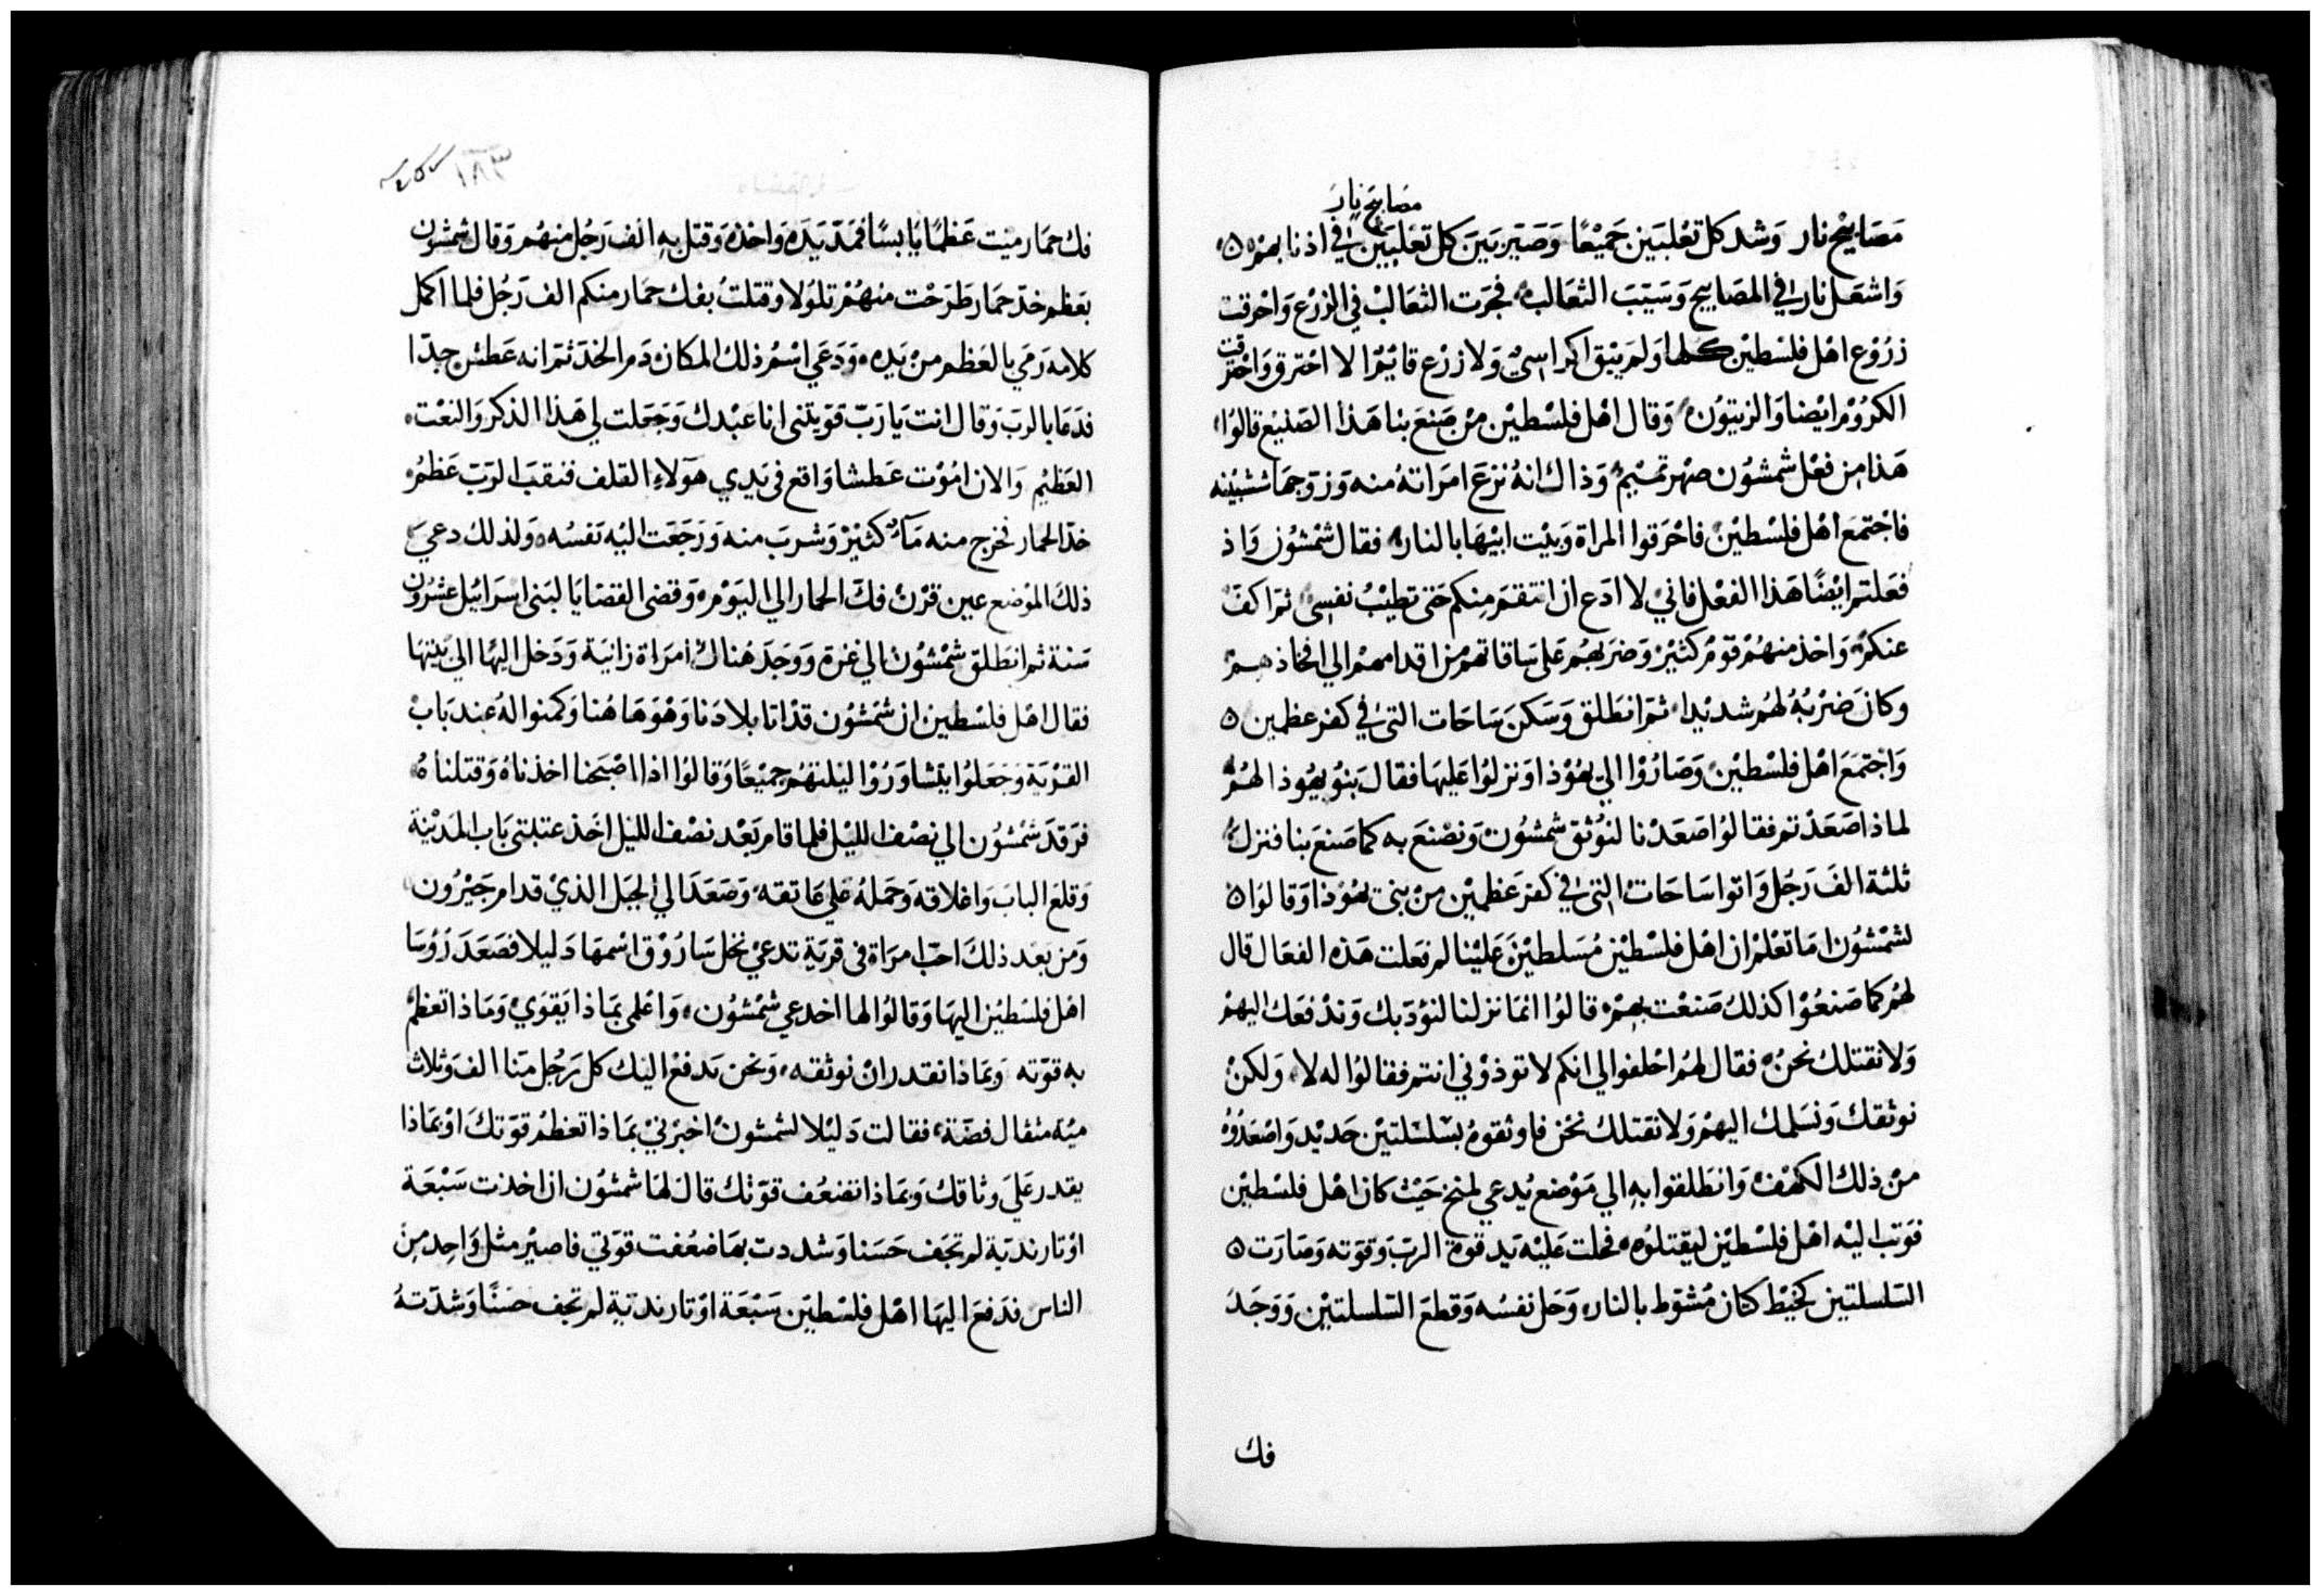 مصابيح نار
مَصَابيْح نار وَشد كل تعْلبَين جَميْعًا وَصَيّر بَينَ كل تعَلبَيَن في اذنابهمْ
وَاشعَل نار في المصَابيح وَسَيّبَ الثعَالب فجرَت الثعَالبْ في الزرْع وَاحْرقت
زرُوْع اهْل فلسْطيْن كلها وَلم يَبْق اكراسىْ وَلا زرْع قائيْمًا لا احْترق وَاحْترقت
الكرُوْم ايْضا وَالزيتوُن وَقال اهْل فلسْطيْن منْ صَنعَ بنا هَذا الصَنيْع قالوُا
هَذا من فعْل شمشوُن صهْر تمسْيمْ وَذاك انهُ نزعَ امرَاتهُ منه وَزوّجهَا شبْينه
فاجْتمعَ اهْل فلسْطيْن فاحْرَقوا المرَاة وَبيْت ابيْهَا بالنار فقال شمْشوُن وَاذ
فعَلتم ايْضًا هَذا الفعْل فاني لا ادَع ان انتقمَ منكم حَتى تطيْبْ نفسى ثمّ اكفّ
عنكمْ وَاخذ منهمْ قومْ كثيْرْ وَضرَبهم عَلى سَاقاتهم من اقدامهمْ الي افخاذهمْ
وكانَ ضرْبهُ لهُم شديْدا ثمّ انطَلق وَسَكنَ سَاحَات التى في كفر عظمين
وَاجْتمَعَ اهْل فلسْطيْن وَصَارُوْا الي يهُوْذا وَنزلوُا عَليهَا فقالَ بَنوُ يهُوذا لهُمْ
لماذا صَعَدْتم فقالوُا صَعَدْنا لنوُثق شمْشوُن وَنصْنعَ به كما صَنعَ بنا فنزل
ثلثة الفَ رَجُل وَاتوا سَاحَات التى في كفر عَظميْن منْ بنى يهُوْذا وَقالوُا
لشمْشوُن امَا تعْلم ان اهْل فلسْطيْن مُسَلطيْنَ عَليْنا لم فعَلت هَذه الفعَال قال
لهُم كما صَنعُوْا كذلك صَنعْت بهمْ قالوُا انمَا نزلنا لنوُدّبك وَندْفعَك اليهمْ
وَلا نقتلك نحن فقال لهُم احْلفوا لي انكم لا توذوْني انتم فقالوُا له لا وَلكنْ
نوثقك وَنسَلمك اليهمْ وَلا نقتلك نحْن فاوثقوهُ بسْلسْلتيْن حَديْد وَاصْعَدُوْهُ
منْ ذلك الكهْف وَانطَلقوا بهِ الي مَوْضع يُدعي لمنخ حَيْث كان اهْل فلسْطيْن
فوَثبَ اليْه اهْل فلسْطيْن ليقتلوْه فحلت عَليْه يَد قوة الربّ وَقوّته وَصَارَت
السّلسلتيْن كخيْط كتان مُشوّط بالنار وَحَل نفسُه وَقطعَ السّلسلتيْن وَوَجَدَ
فك
١٨٣
فك حمَار ميْت عَظمًا يَابسًا فمَدّ يَدَه وَاخذه وَقتل بهِ الف رَجُل منهُم وَقال شمْشون
بعَظم خدّ حمَار طرَحْت منهُمْ تلوُلا وَقتلت بفك حمَار منكم الف رَجُل فلما اكمل
كلامه رَمي بالعَظم منْ يَده وَدَعي اسْم ذلك المكان دَم الخدّ ثمّ انه عَطشْ جدّا
فدَعَا بالرب وَقال انت يَا رَبّ قوّيتنى انا عَبْدك وَجَعَلت لي هَذا الذكر وَالنعْت
العَظيْم وَالان امُوْت عَطشا وَاقع في يَدي هَوْلاء القلف فنقبَ الرَبّ عَظمُ
خدّ الحمار فخرج منه مَاءْ كثيْر وَشربَ منه وَرَجَعَت اليْه نَفسُه وَلذلك دعيَ
ذلكَ الموْضع عين قرْن فك الحمار الي اليَوْم وَقضى القضَايَا لبَني اسرَائيْل عشرُون
سَنة ثم انطَلق شمْشوُن الي غزة وَوَجَدَ هُناك امرَاة زانيَة وَدَخل اليهَا الي بَيتهَا
فقال اهْل فلسْطيْن ان شمْشوُن قدْ اتا بلادَنا وَهُوَ هَاهُنا وَكمنوا لهُ عند بَابْ
القرْيَة وَجَعَلوُا يتشاوَرُوْا ليْلتهُم جميْعًا وَقالوُا اذا اصْبَحنا اخذناهُ وَقتلناهُ
فرَقدَ شمْشوُن الي نصْف الليْل فلما قام بَعْد نصْف الليل اخذ عتبتى بَاب المَديْنة
وَقلعَ البابَ وَاغلاقه وَحَملهُ عَلي عَاتقه وَصَعَدَ الي الجَبَل الذيْ قدام حَبْرُون
وَمن بعَد ذلكَ احَبّ امرَاة في قريَة تدعيْ نخل سَارُوْق اسْمهَا دَليلا فصَعَدَ رُؤسَا
اهْل فلسْطيْن اليهَا وَقالوُا لها اخدعي شمْشوُن وَاعْلمى بمَاذا يَقوَيْ وَمَاذا تعظم
به قوّته وَبمَاذا نقدر انْ نوثقه وَنحن ندفعْ اليْك كل رَجُل منا الف وَثلاث
ميْة مثقال فضّة فقالت دَليْلا لشمْشونْ اخبرْنيْ بمَاذا تعظمُ قوّتكَ اوْ بمَاذا
يقدر عَلي وثاقك وَبمَاذا تضعُف قوّتك قال لهَا شمشوُن ان اخذت سَبْعَة
اوْتار نديّة لم تجَف حَسَنا وَشددت بهَا ضعُفت قوّتي فاصيْر مثل وَاحِد منَ
الناس فدَفعَ اليهَا اهْل فلسْطيْن سَبْعَة اوْتار نديّة لم تجف حسَنًا وَشدّتهُ